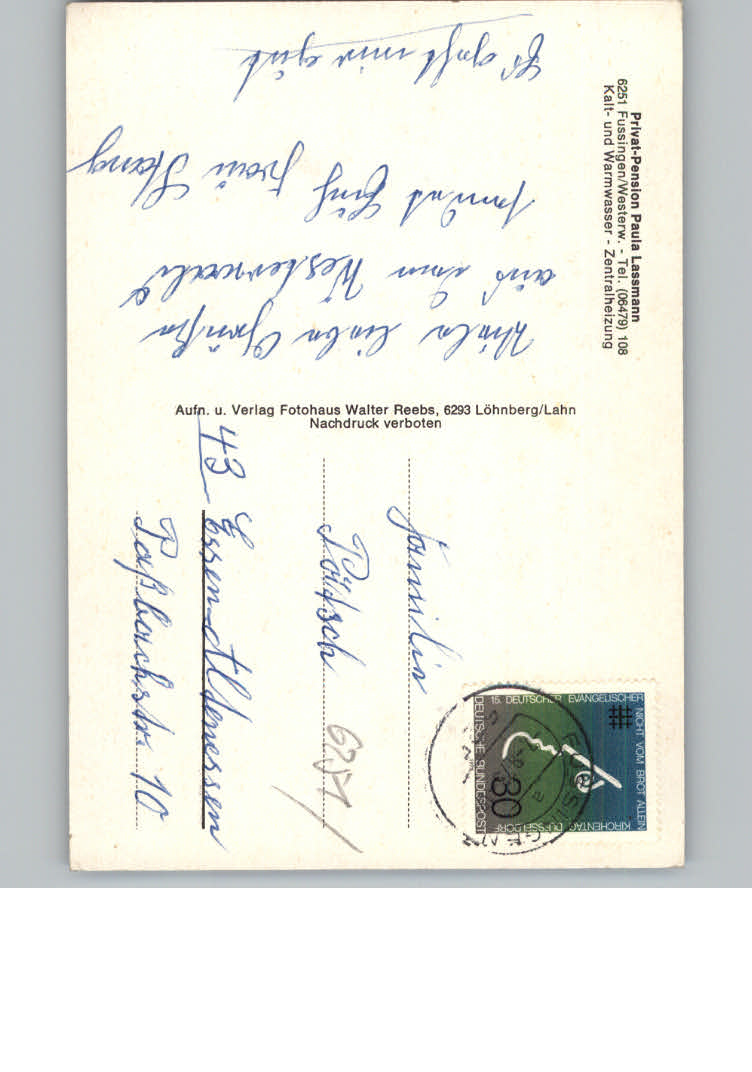 Privat-Pension Paula Lassmann
6251 Fussingen/Westerw. - Tel. (06479) 108
Kalt- und Warmwasser - Zentralheizung
Viele liebe Grüße
aus dem Westerwald
sendet Euch Frau Stang
Es geht mir gut
Aufn. u. Verlag Fotohaus Walter Reebs, 6293 Löhnberg/Lahn
Nachdruck verboten
Familie
Pätsch
43 Essen-Altenessen
Paßbachstr. 10
6251
15. DEUTSCHER EVANGELISCHER
KIRCHENTAG DÜSSELDORF
NICHT VOM BROT ALLEIN
DEUTSCHE BUNDESPOST
30